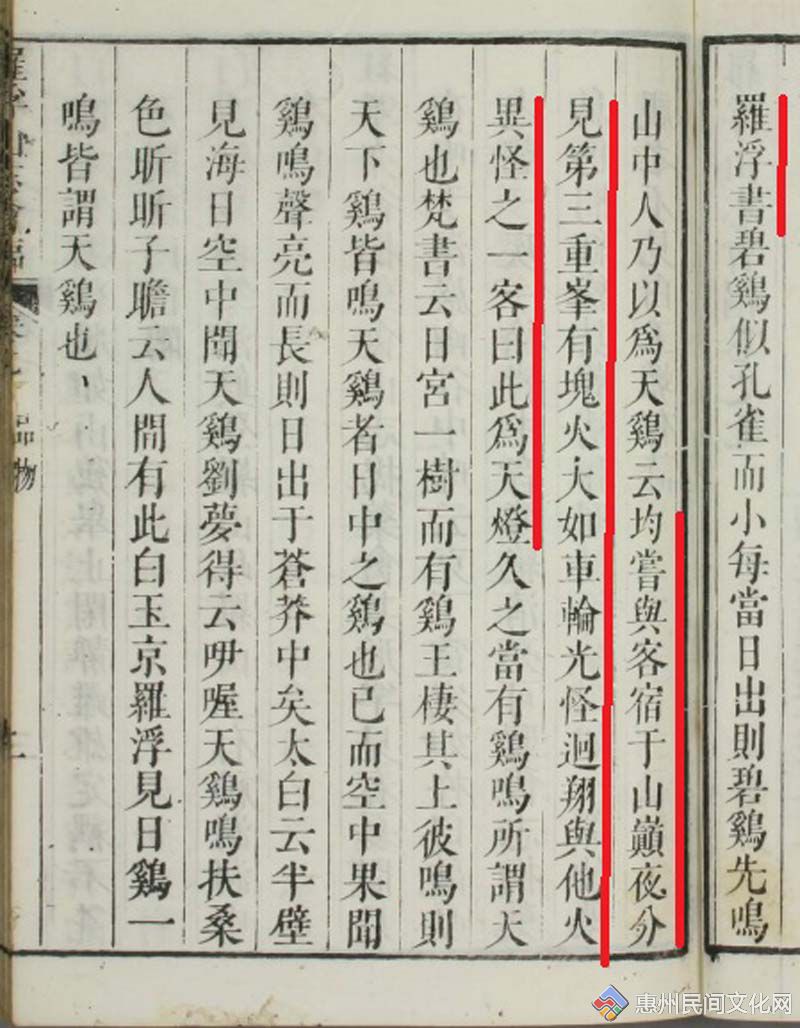 羅浮書碧鷄似孔雀而小每當日出則碧鷄先鳴
山中人乃以爲天鷄云均嘗與客宿于山巔夜分
見第三重峯有塊火大如車輪光怪迴翔與他火
異怪之一客曰此爲天燈久之當有鷄鳴所謂天
鷄也梵書云日宮一樹而有鷄王棲其上彼鳴則
天下鷄皆鳴天鷄者日中之鷄也已而空中果聞
鷄鳴聲亮而長則日出于蒼莽中矣太白云半壁
見海日空中聞天鷄劉夢得云咿喔天鷄鳴扶桑
色昕昕子瞻云人間有此白玉京羅浮見日鷄一
鳴皆謂天鷄也、
品物
惠州民间文化网